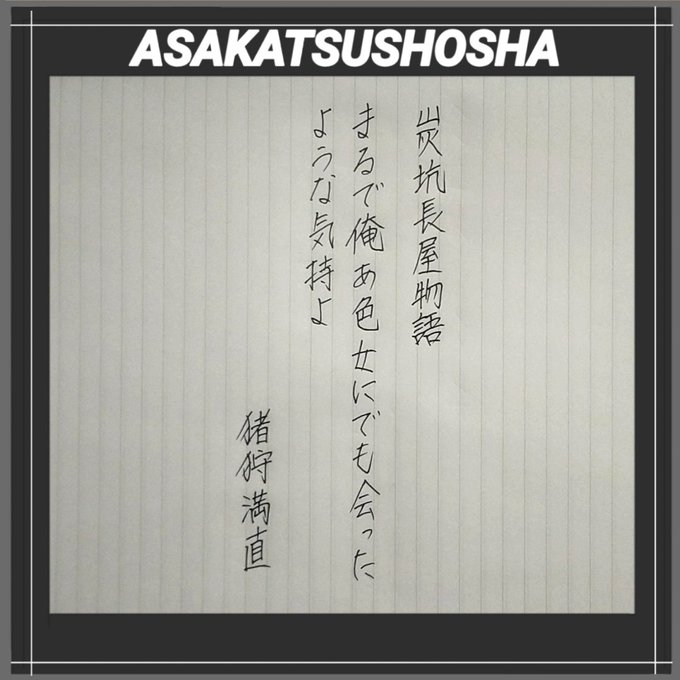 ASAKATSUSHOSHA
炭坑長屋物語
まるで俺あ色女にでも会った
ような気持よ
猪狩満直